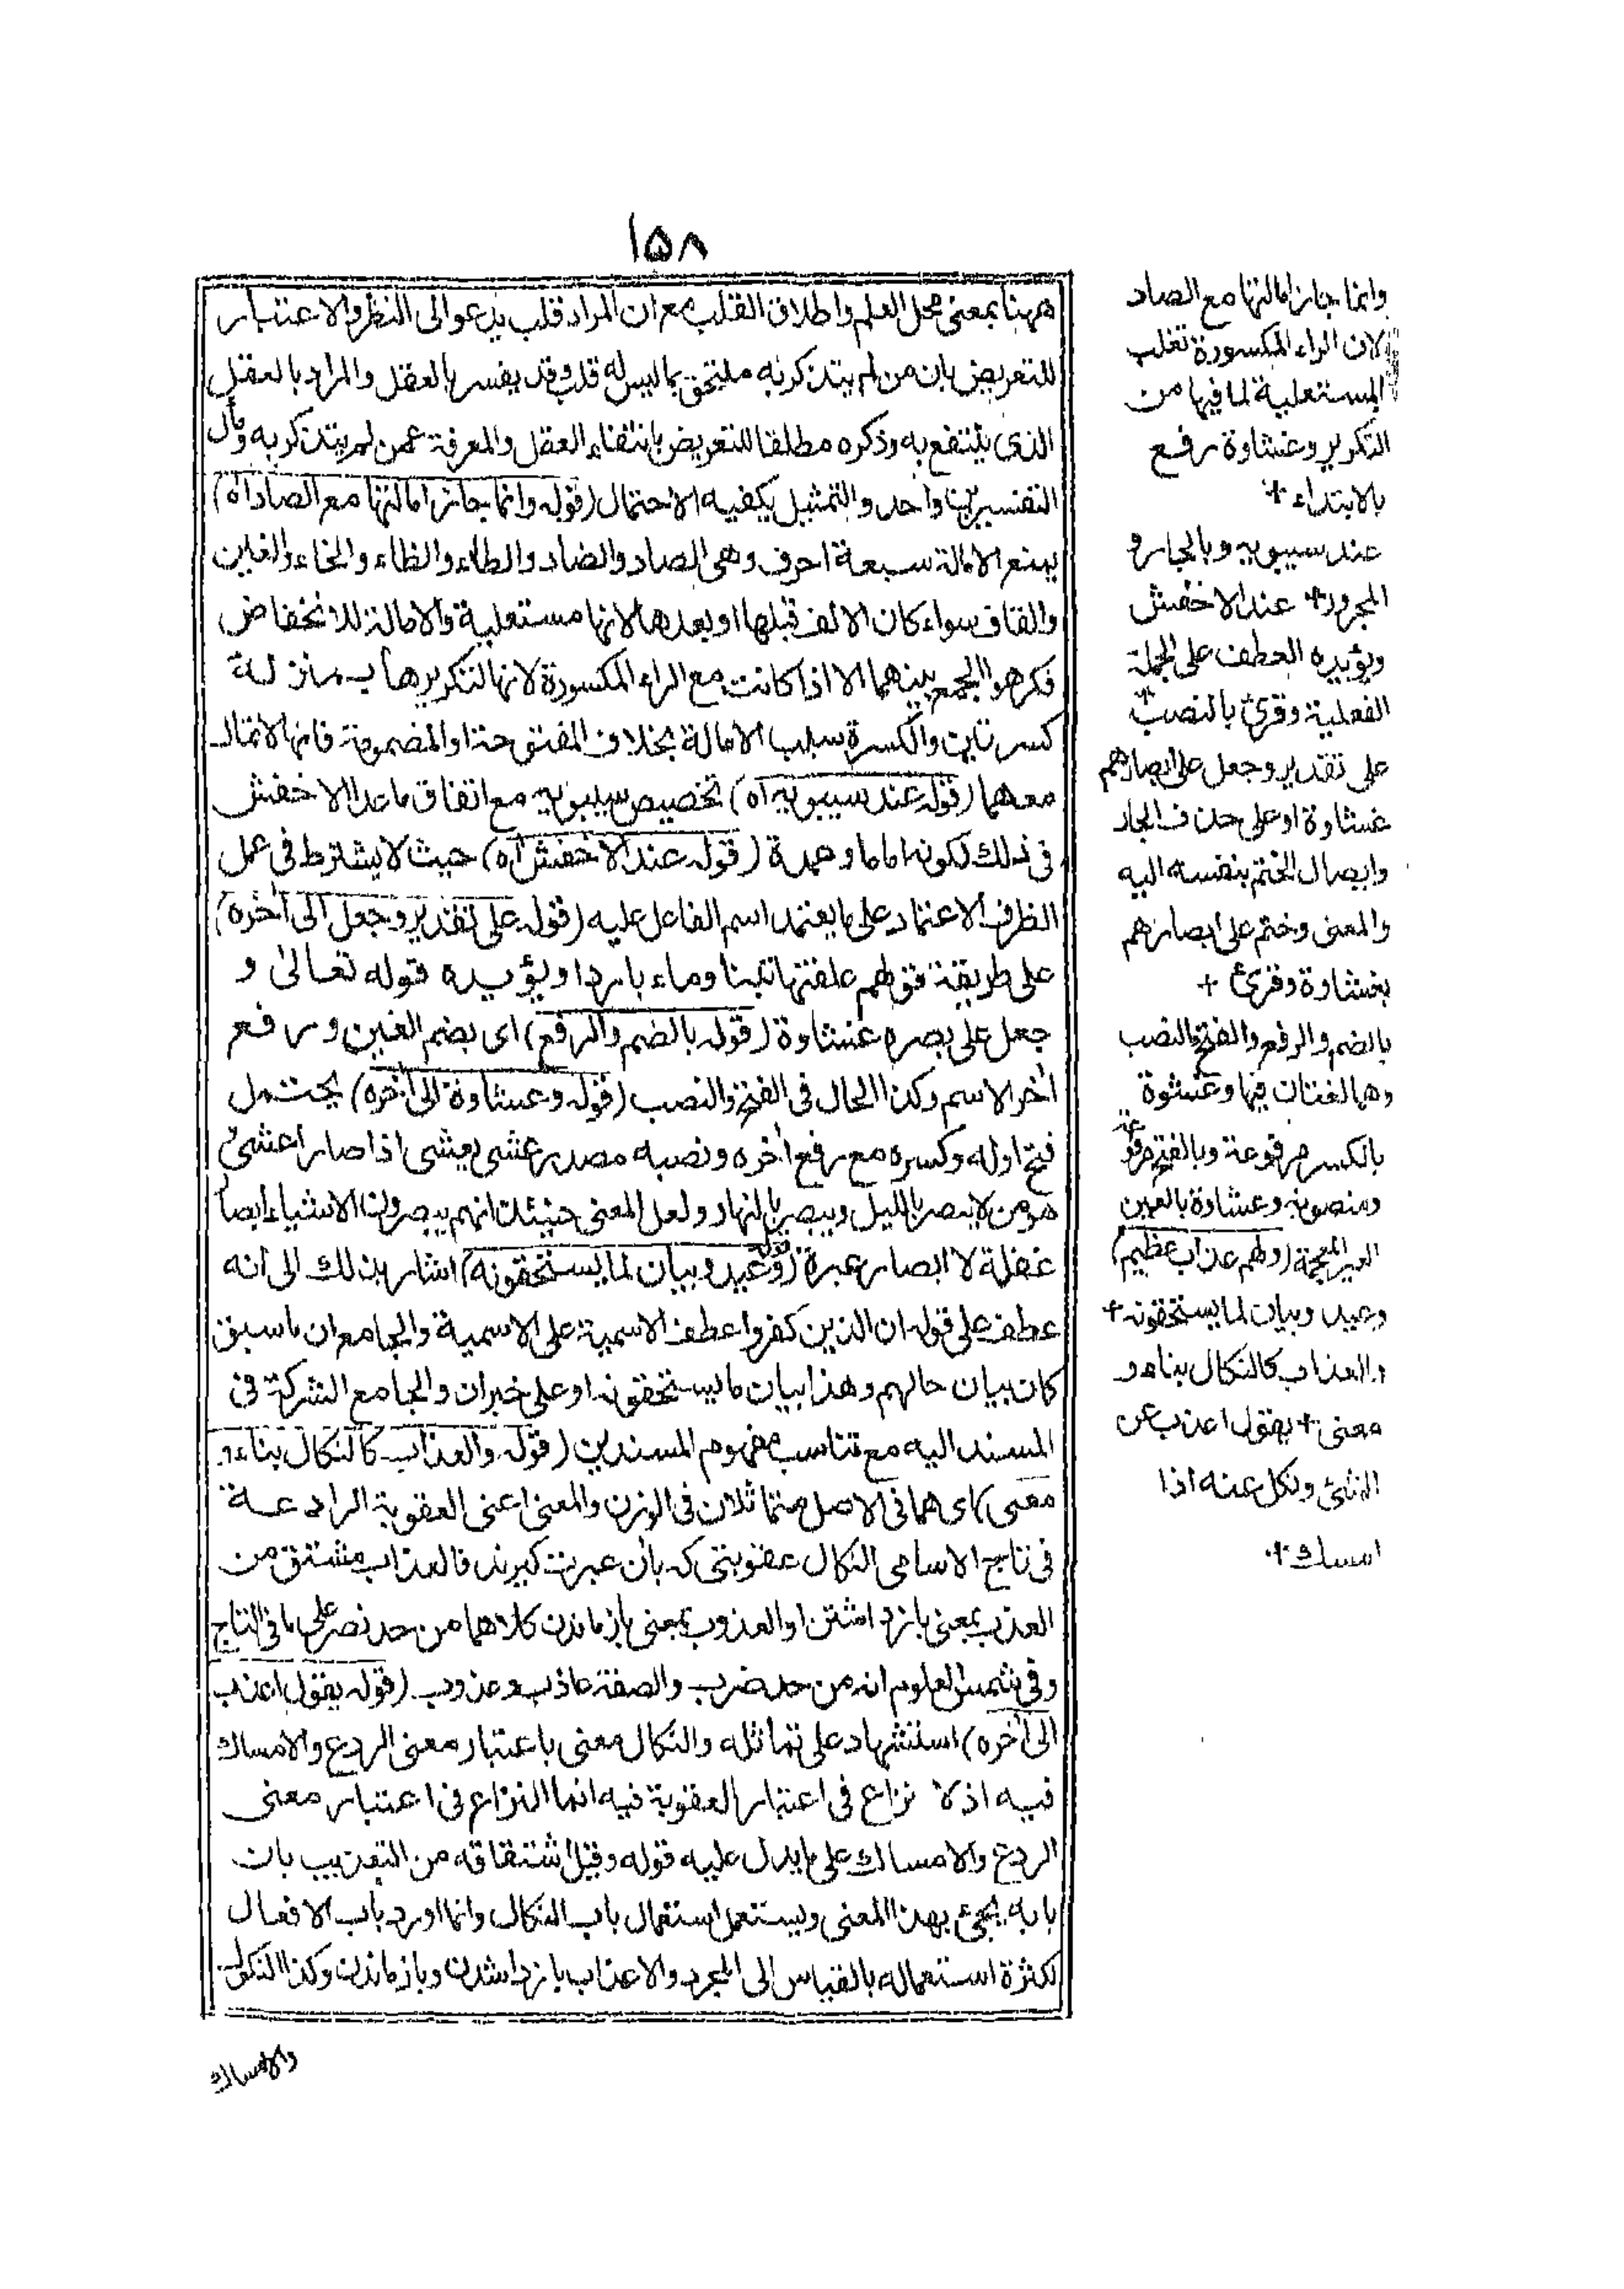 ١٥٨
ههنا بمعنى محل العلم واطلاق القلب مع ان المراد قلب يدعو الى النظر والاعتبار
للتعريض بان من لم يتذكر به ملتحق بما ليس له قلب وقد يفسر بالعقل والمراد بالعقل
الذى ينتفع به وذكره مطلقا للتعريض بانتفاء العقل والمعرفة عمن لم يتذكر به ومآل
التفسيرين واحد والتمثيل يكفيه الاحتمال (قوله وانما جاز امالتها مع الصاد اه)
يمنع الامالة سبعة احرف وهى الصاد والضاد والطاء والظاء والخاء والغين
والقاف سواء كان الالف قبلها او بعدها لانها مستعلية والامالة للانخفاض
فكرهوا الجمع بينهما الا اذا كانت مع الراء المكسورة لانها لتكريرها بمنزلة
كسرتين والكسرة سبب الامالة بخلاف المفتوحة او المضمومة فانها لا تمال
معهما (قوله عند سيبويه اه) تخصيص سيبويه مع اتفاق ماعدا الاخفش
فى ذلك لكونه اماما وعمدة (قوله عند الاخفش اه) حيث لا يشترط فى عمل
الظرف الاعتماد على ما يعتمد اسم الفاعل عليه (قوله على تقدير وجعل الى آخره)
على طريقة قولهم علفتها تبنا وماء باردا ويؤيده قوله تعالى و
جعل على بصره غشاوة (قوله بالضم والرفع) اى بضم الغين ورفع
آخر الاسم وكذا الحال فى الفتح والنصب (قوله وعشاوة الى آخره) يحتمل
فتح اوله وكسره مع رفع آخره ونصبه مصدر عشى يعشى اذا صار اعشى
هو من لا يبصر بالليل ويبصر بالنهار ولعل المعنى حينئذ انهم يبصرون الاشياء ابصار
غفلة لا ابصار عبرة (قوله وعيد وبيان لما يستحقونه) اشار بذلك الى انه
عطف على قوله ان الذين كفروا عطف الاسمية على الاسمية والجامع ان ما سبق
كان بيان حالهم وهذا بيان ما يستحقونه او على خبر ان والجامع الشركة فى
المسند اليه مع تناسب مفهوم المسندين (قوله والعذاب كالنكال بناء و
معنى) اى هما فى الاصل متماثلان فى الوزن والمعنى اعنى العقوبة الرادعة
فى تاج الاسامى النكال عقوبتى كه بان عبرت كيرند فالعذاب مشتق من
العذب بمعنى بازداشتن او العذوب بمعنى بازماندن كلاهما من حد نصر على ما فى التاج
وفى شمس العلوم انه من حد ضرب والصفة عاذب وعذوب (قوله يقول اعذب
الى آخره) استشهاد على تماثله والنكال معنى باعتبار معنى الردع والامساك
فيه اذ لا نزاع فى اعتبار العقوبة فيه انما النزاع فى اعتبار معنى
الردع والامساك على ما يدل عليه قوله وقيل اشتقاقه من التعذيب بان
بابه يجئ بهذا المعنى ويستعمل استعمال باب النكال وانما اورد باب الافعال
لكثرة استعماله بالقياس الى المجرد والاعذاب بازداشدن وبازماندن وكذا النكول
والامساك
وانما جاز امالتها مع الصاد
لان الراء المكسورة تغلب
المستعلية لما فيها من
التكرير وغشاوة رفع
بالابتداء +
عند سيبويه وبالجار و
المجرور + عند الاخفش
ويؤيده العطف على الجملة
الفعلية وقرئ بالنصب +
على تقدير وجعل على ابصارهم
غشاوة او على حذف الجار
وايصال الختم بنفسه اليه
والمعنى وختم على ابصارهم
بغشاوة وقرئ +
بالضم والرفع والفتح والنصب
وهما لغتان فيها وغشوة
بالكسر مرفوعة وبالفتح مرفوعة
ومنصوبة وعشاوة بالعين
الغير المعجمة (ولهم عذاب عظيم)
وعيد وبيان لما يستحقونه +
والعذاب كالنكال بناء و
معنى + يقول اعذب عن
الشئ ونكل عنه اذا
امسك +